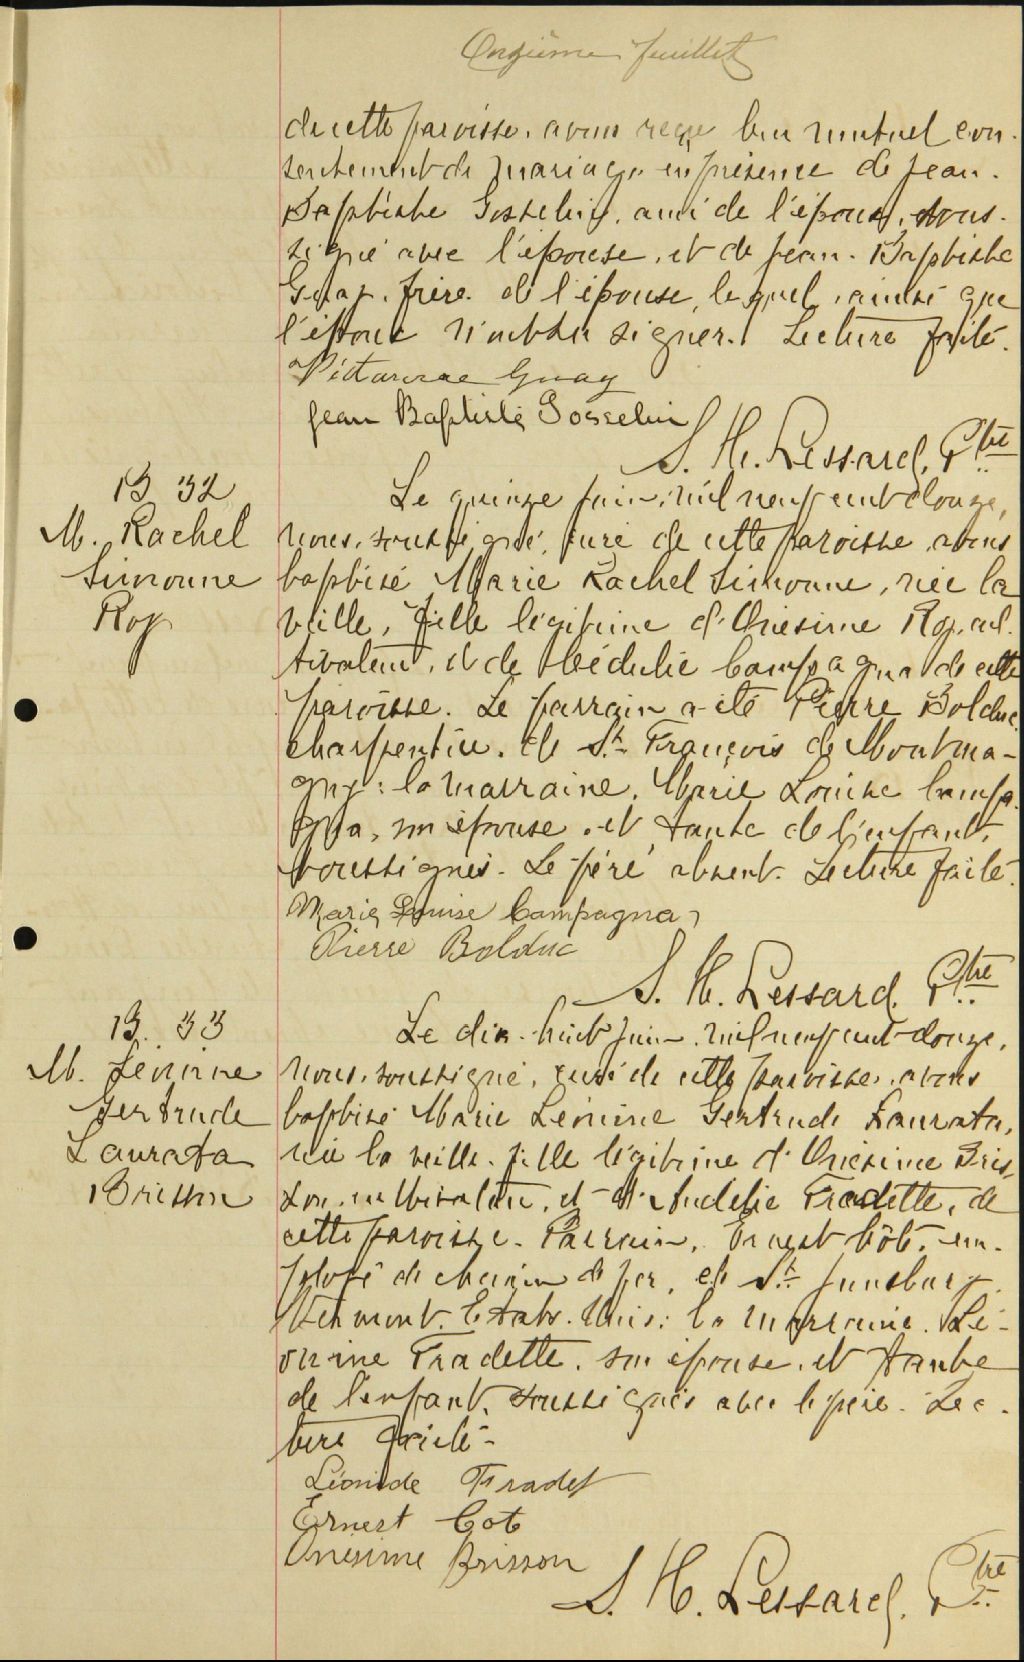 Onzième feuillet
de cette paroisse, avons reçu leur mutuel con-
sentement de mariage en présence de Jean-
Baptiste Gosselin, ami de l'époux, sous-
signé avec l'épouse, et de Jean-Baptiste
Guay, frère de l'épouse, lequel, ainsi que
l'époux n'ont su signer. Lecture faite.
Guay
Jean Baptiste Gosselin
S. H. Lessard, Ptre
B 32
M. Rachel
Simonne
Roy
Le quinze juin, mil neuf cent douze,
nous, soussigné, curé de cette paroisse, avons
baptisé Marie Rachel Simonne, née la
veille, fille légitime d'Onésime Roy, cul-
tivateur, et de Cédulie Campagna de cette
paroisse. Le parrain a été Pierre Bolduc
charpentier, de St. François de Montma-
gny: la marraine, Marie Louise Campa-
gna, son épouse, et tante de l'enfant,
soussignés. Le père absent. Lecture faite.
Marie Louise Campagna
Pierre Bolduc
S. H. Lessard, Ptre
B. 33
M. Léonine
Gertrude
Laurata
Brisson
Le dix-huit juin, mil neuf cent douze,
nous, soussigné, curé de cette paroisse, avons
baptisé Marie Léonine Gertrude Laurata,
née la veille, fille légitime d'Onésime Bris-
son, cultivateur, et d'Audélie Fradette, de
cette paroisse. Parrain, Ernest Côté, em-
ployé de chemin de fer, de St. Junsbury,
Vermont, Etats-Unis: la marraine, Lé-
onine Fradette, son épouse, et tante
de l'enfant, soussignés avec le père. Lec-
ture faite.
Léonide Fradet
Ernest Cote
Onésime Brisson
S. H. Lessard, Ptre